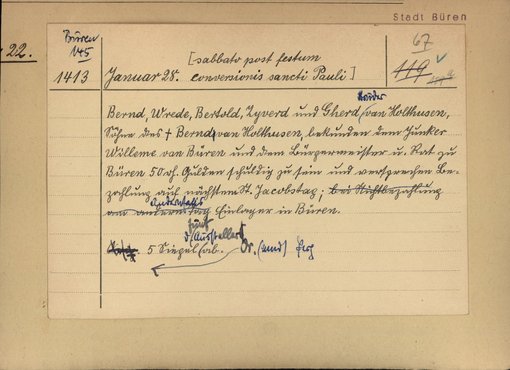 Stadt Büren
22.
Büren
145
67
119
[sabbato post festum
1413 Januar 28. conversionis sancti Pauli]
Brüder
Bernd, Wrede, Bertold, Zyverd und Gherd (van Holthusen,
Söhne des † Bernd van Holthusen, bekunden dem Junker
Willeme van Büren und dem Bürgermeister u. Rat zu
Büren 50 rh. Gulden schuldig zu sein und versprechen Be-
zahlung auf nächsten St. Jacobstag; bei Nichtbezahlung
andernfalls
am anderen Tag Einlager in Büren.
fünf
d. Aussteller
5 Siegel ab. Or. (mnd) Perg